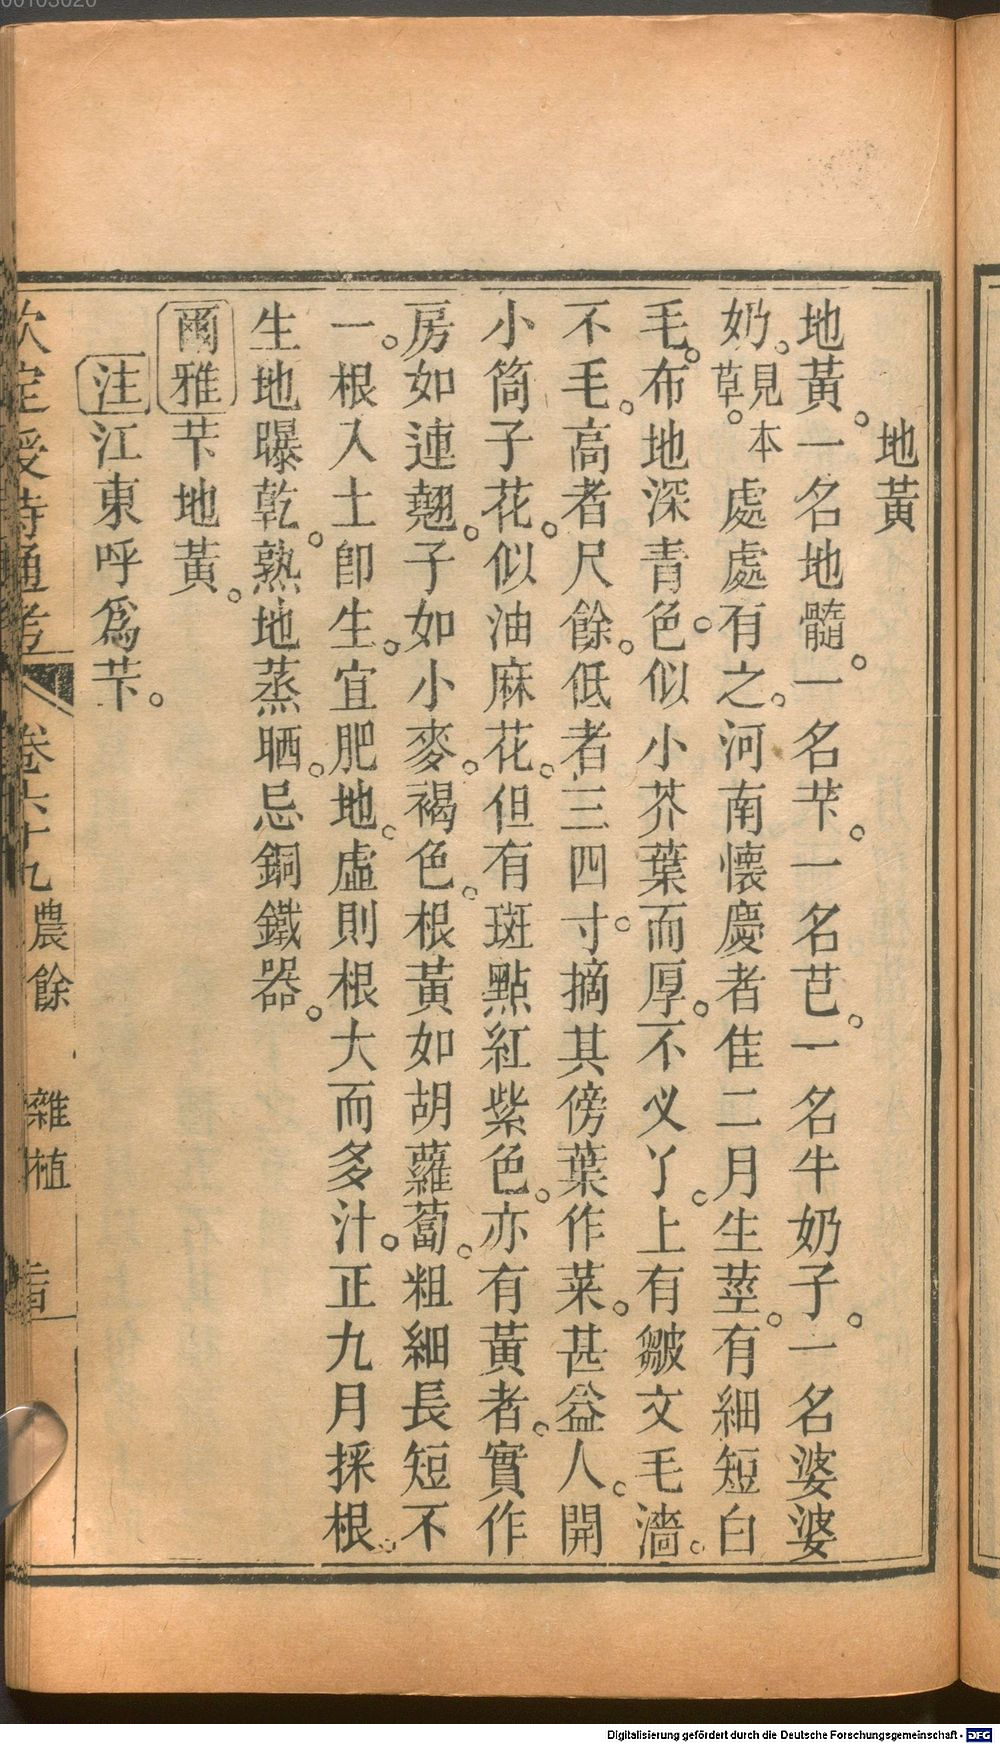 地黃
地黃。一名地髓。一名芐。一名芑。一名牛奶子。一名婆婆
奶。見本草。處處有之。河南懷慶者佳二月生莖。有細短白
毛。布地深青色。似小芥葉而厚。不义丫。上有皺文毛濇。
不毛。高者尺餘。低者三四寸。摘其傍葉作菜。甚益人。開
小筒子花。似油麻花。但有斑點紅紫色。亦有黃者。實作
房如連翹。子如小麥。褐色。根黃如胡蘿蔔。粗細長短不
一。根入土卽生。宜肥地。虛則根大而多汁。正九月採根。
生地曝乾。熟地蒸晒。忌銅鐵器。
爾雅芐地黃。
注江東呼爲芐。
欽定授時通考 卷六十九農餘 雜植
00103020
Digitalisierung gefördert durch die Deutsche Forschungsgemeinschaft - DFG